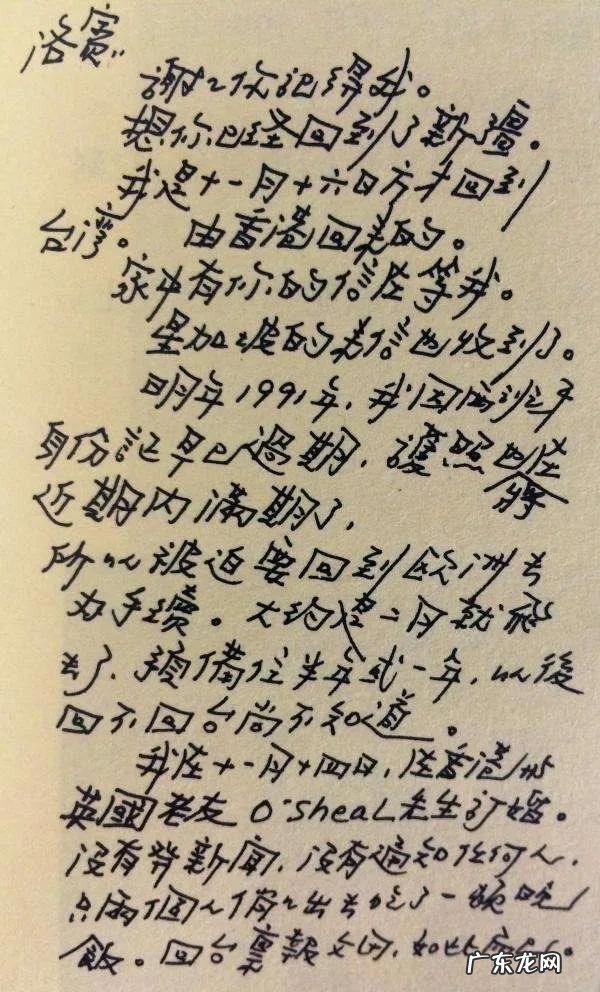 洛賓：
謝謝你記得我。
想你已经回到了新疆。
我是十一月十六日方才回到
台湾。 由香港回来的。
家中有你的信在等我。
星加坡的老信也收到了。
明年1991年，我因西班牙
身份証早已過期，護照已在將
近期内滿期了，
所以被迫要回到欧洲去
办手續。大约二月就
去了，預備住半年或一年，以後
回不回台尚不知道。
我在十一月十四日，在香港
英國老友O'sheaL先生訂婚。
没有發新闻，没有通知任何人，
只兩個人出去吃了一頓晚
飯。回台裏報
广东龙网